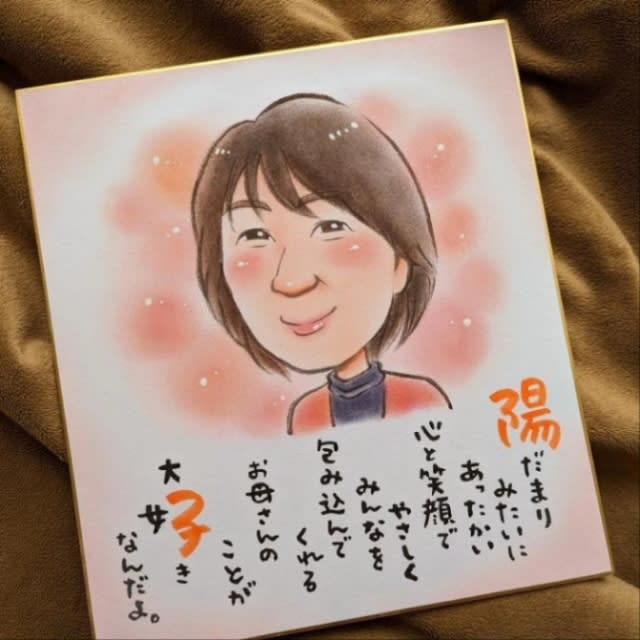 陽だまり
みたいに
あったかい
心と笑顔で
やさしく
みんなを
包み込んで
くれる
お母さんの
ことが
大好き
なんだよ。